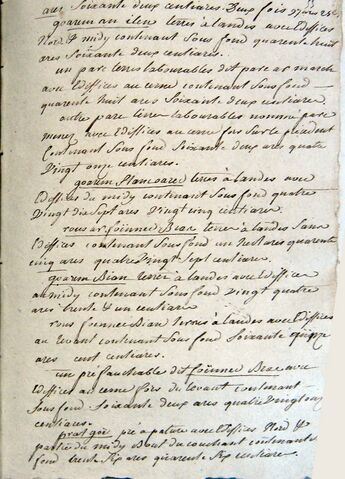 ares Soixante deux centiares. Deux fois
goarem an clen terres à landes avec Edifices
Nord & midy contenant Sous fond quarente huit
ares Soixante deux centiares.
un parc terres labourables dit parc ar march
avec Edifices au cerne contenant Sous fond
quarente huit ares Soixante deux centiares
autre parc terres labourables nommé parc
menez avec Edifices au cerne fors Sur le précédent
Contenant Sous fond Soixante deux ares quatre
Vingt onze centiares.
goarem Plancoaret terres à landes avec
Edifices du midy contenant Sous fond quatre
Vingt Dix Sept ares Vingt cinq centiares.
rous ar foënnec Bian terres à landes Sans
Edifices contenant Sous fond un hectare quarente
cinq ares quatre Vingt Sept centiares.
goarem Bian terres à landes avec Edifices
au midy contenant Sous fond Vingt quatre
ares trente & un centiares
rous foennec Bian terres à landes avec Edifices
au levant contenant Sous fond Soixante quinze
ares cent centiares.
un pré fauchable dit foënnec Bras avec
Edifices au cerne fors du levant contenant
Sous fond Soixante deux ares quatre Vingt onze
centiares.
prat goz pré à pature avec Edifices Nord &
partie du midy bout du couchant contenant
fond trente Six ares quarente Six centiares.